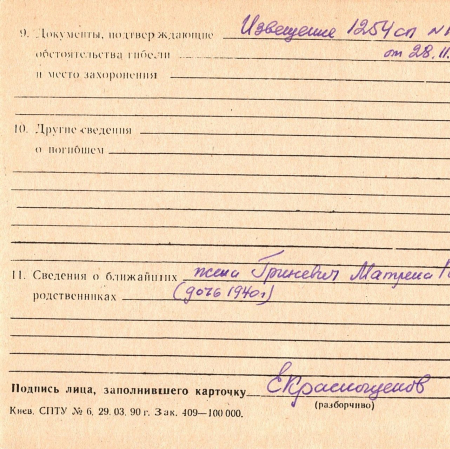 9. Документы, подтверждающие Извещение 1254 сп №
обстоятельства гибели от 28.11.
и место захоронения
10. Другие сведения
о погибшем
11. Сведения о ближайших жена Гриневич Матрена
родственниках (дочь 1940 г)
Подпись лица, заполнившего карточку ЕКраснощеков
(разборчиво)
Киев, СПТУ № 6, 29. 03. 90 г. Зак. 409—100 000.